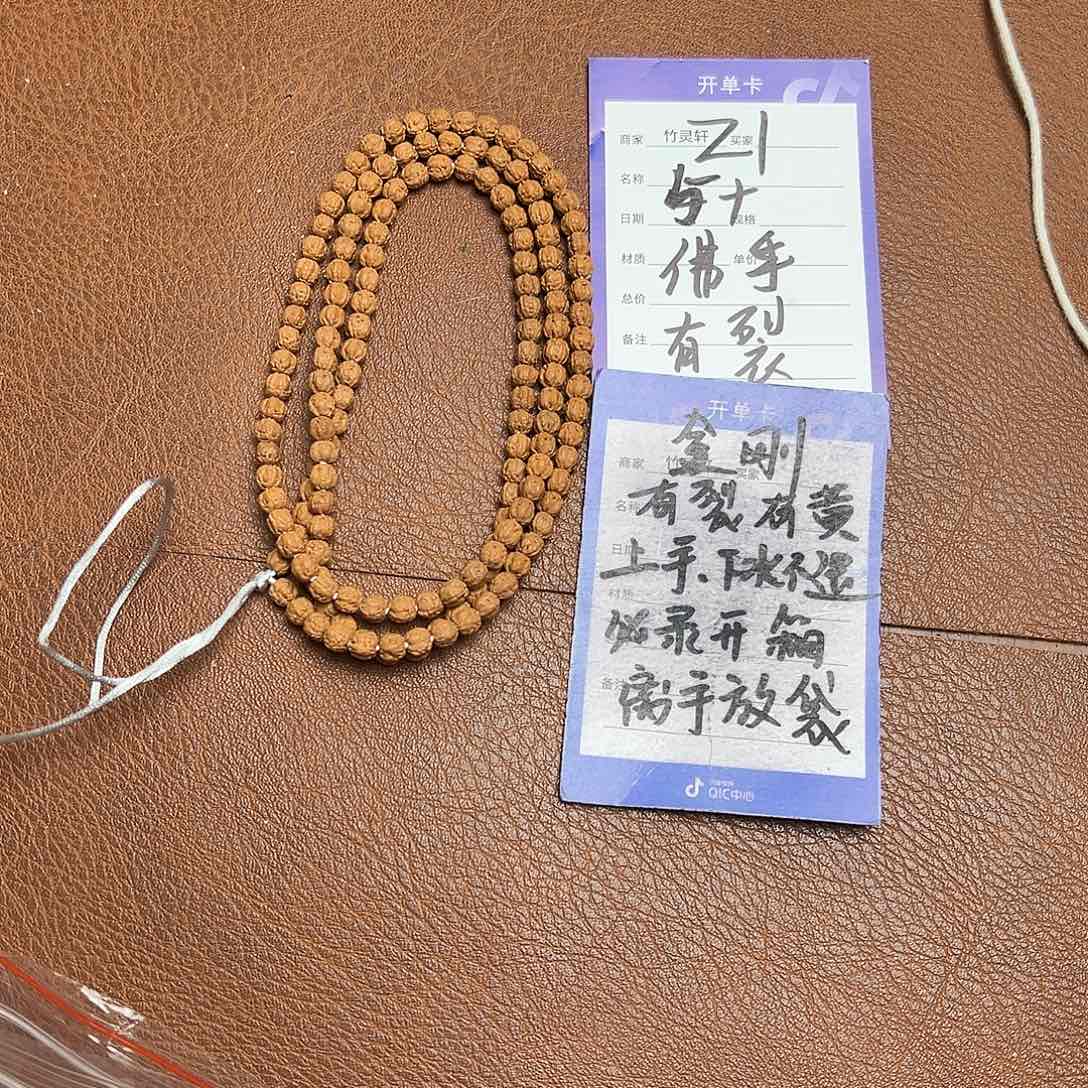 开单卡
商家 竹灵轩 买家
Z1
名称
与十
日期 规格
材质 单价
佛手
总价
备注
有裂
开单卡
金刚
商家 竹 买家
名称
有裂有黄
日期
上手、下水不退
材质
必录开箱
备注
离手放袋
QIC中心